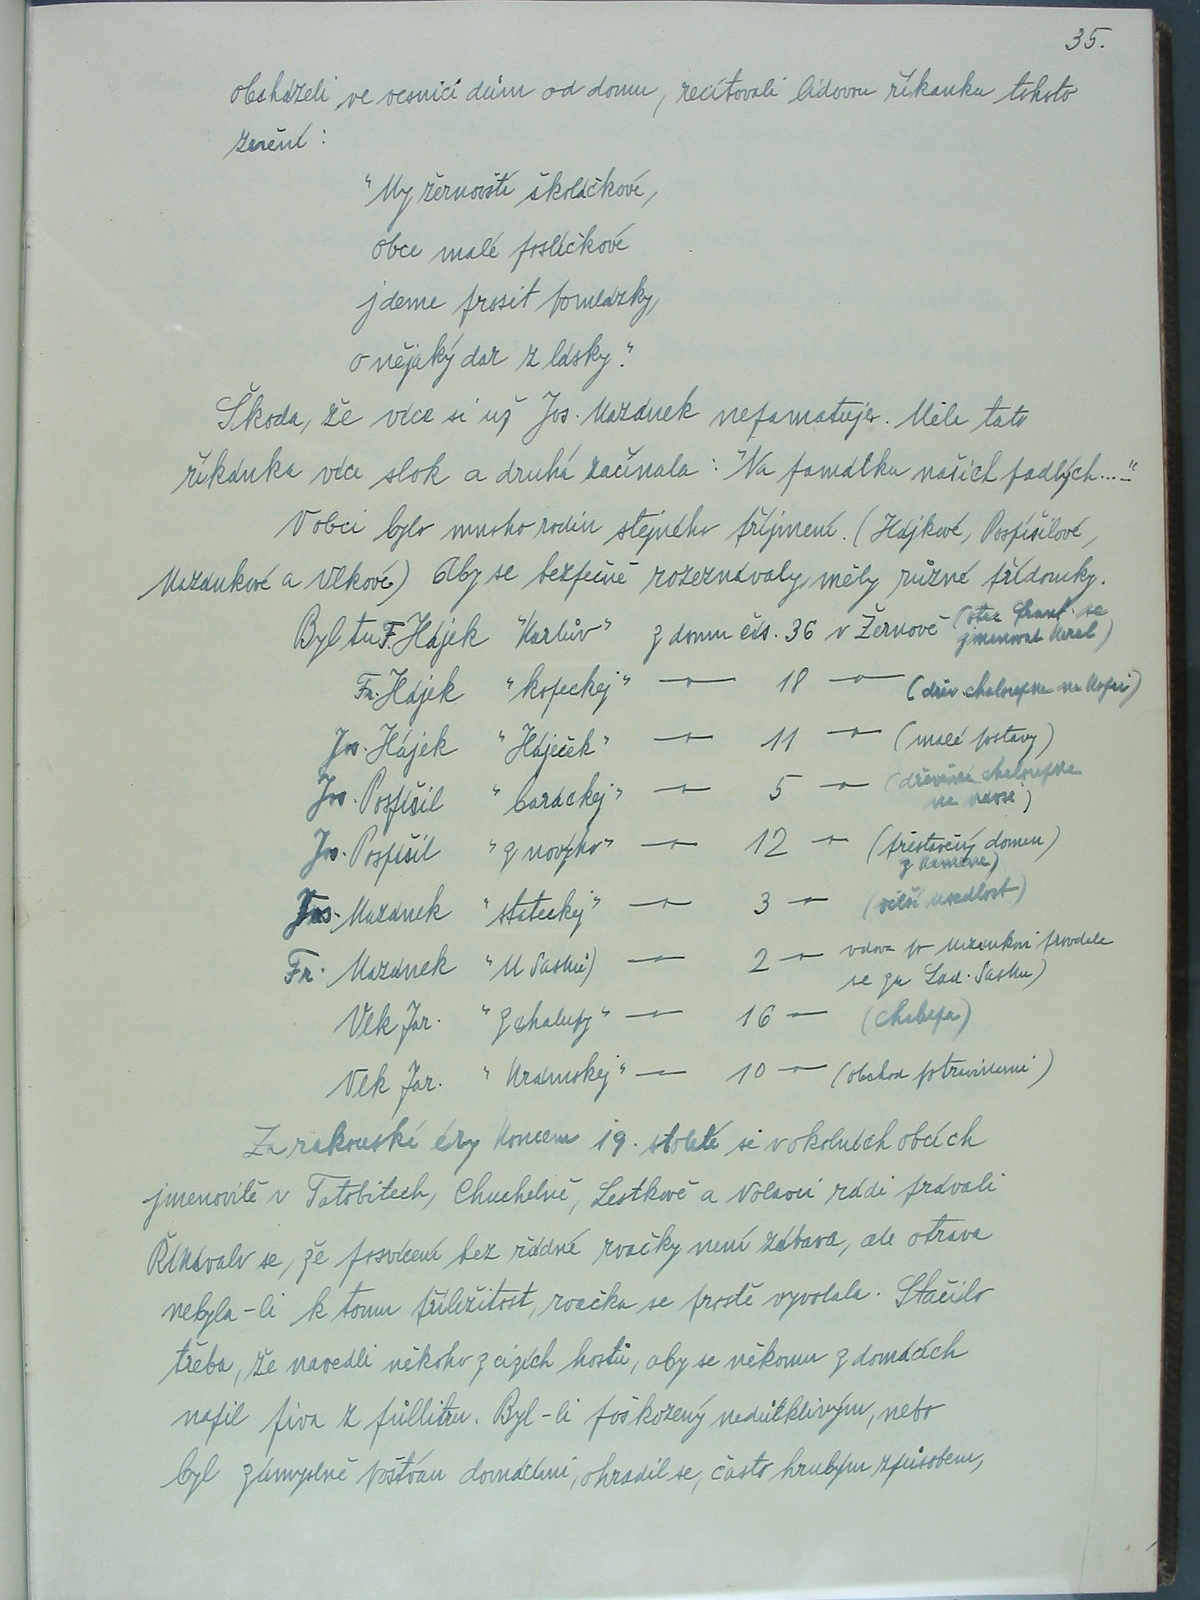 35.
obcházeli ve vesnici dům od domu, recitovali lidovou říkanku tohoto
znění:
"My žernovští školáčkové,
obce malé poslíčkové
jdeme prosit pomlázky,
o nějaký dar z lásky."
Škoda, že více si už Jos. Mazánek nepamatuje. Měla tato
říkánka více slok a druhá začínala: "Na památku našich padlých..."
V obci bylo mnoho rodin stejného příjmení. (Hájkové, Pospíšilové,
Mazánkové a Vlkové) Aby se bezpečně rozeznávaly, měly různé přídomky.
Byl tu F. Hájek "Karlův" z domu čís. 36 v Žernově (otec Frant. se
jmenoval Karel)
Fr. Hájek "kopeckej" —"— 18 —"— (dřív chaloupka na kopci)
Jos. Hájek "Háječek" —"— 11 —"— (malé postavy)
Jos. Pospíšil "baráckej" —"— 5 —"— (dřevěná chaloupka
na návsi)
Jos. Pospíšil "z novýho" —"— 12 —"— (přestavěný domu
z kamene)
Jos. Mazánek "stateckej" —"— 3 —"— (větší usedlost)
Fr. Mazánek "U Sasků) —"— 2 —"— vdova po Mazánkovi provdala
se za Lad. Sasku)
Vlk Jar. "z chalupy" —"— 16 —"— (chalupa)
Vlk Jar. "krámskej" —"— 10 —"— (obchod potravinami)
Za rakouské éry koncem 19. století si v okolních obcích
jmenovitě v Tatobitech, Chuchelně, Lestkově a Volavci rádi právali
Říkávalo se, že posvícení bez řádné rvačky není zábava, ale otrava
nebyla-li k tomu příležitost, rvačka se prostě vyvolala. Stačilo
třeba, že navedli někoho z cizích hostů, aby se někomu z domácích
napil piva z půllitru. Byl-li poškozený nedůtklivým, nebo
byl zúmyslně poštván domácími, ohradil se, často hrubým způsobem,